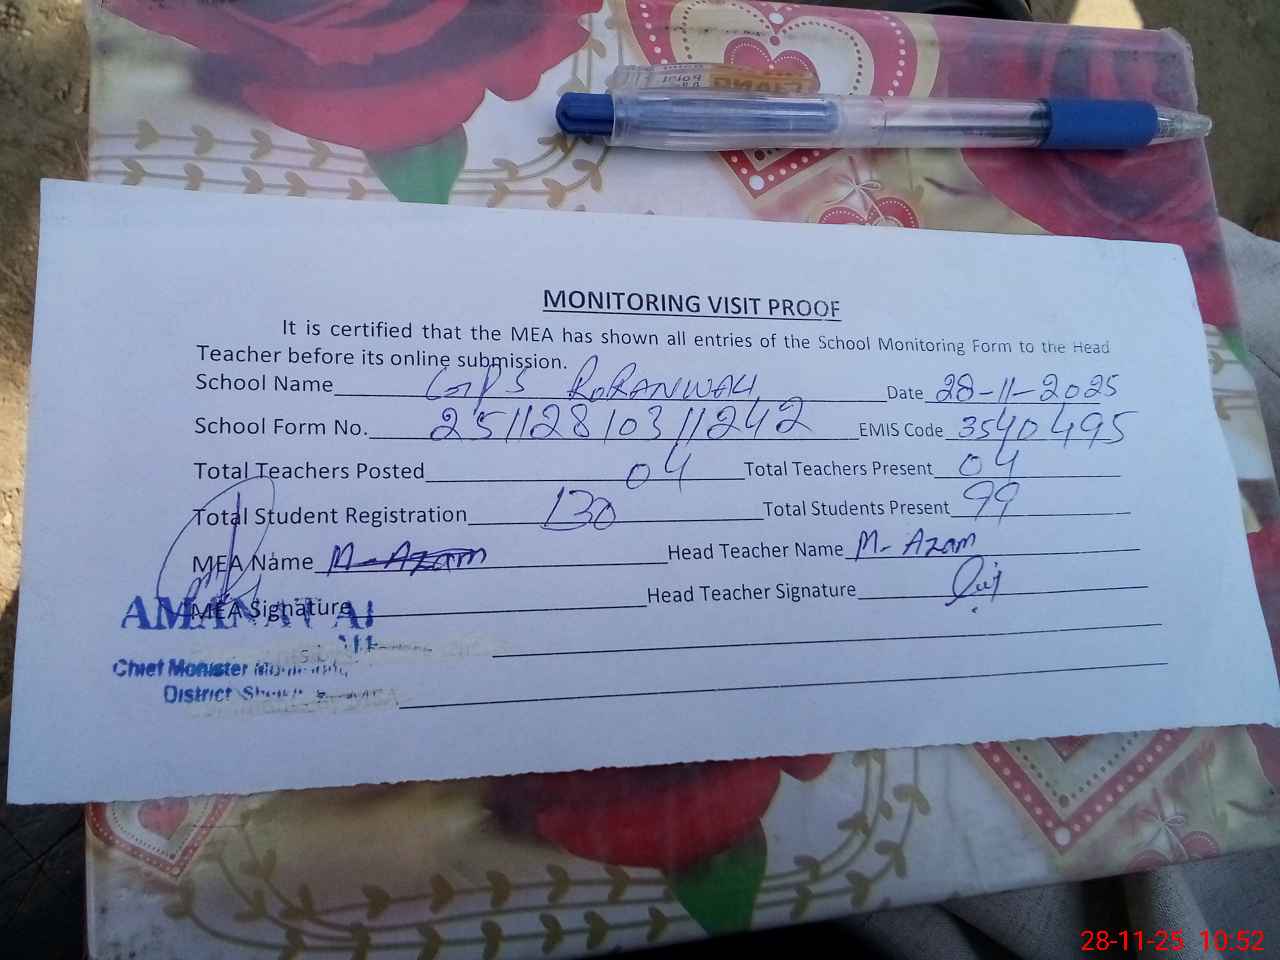 MONITORING VISIT PROOF
It is certified that the MEA has shown all entries of the School Monitoring Form to the Head
Teacher before its online submission.
School Name GPS RORANWALI Date 28-11-2025
School Form No. 25112810311242 EMIS Code 3540495
Total Teachers Posted 04 Total Teachers Present 04
Total Student Registration 130 Total Students Present 99
MEA Name M-Azam Head Teacher Name M- Azam
MEA Signature Head Teacher Signature
Chief Monister
District
28-11-25 10:52